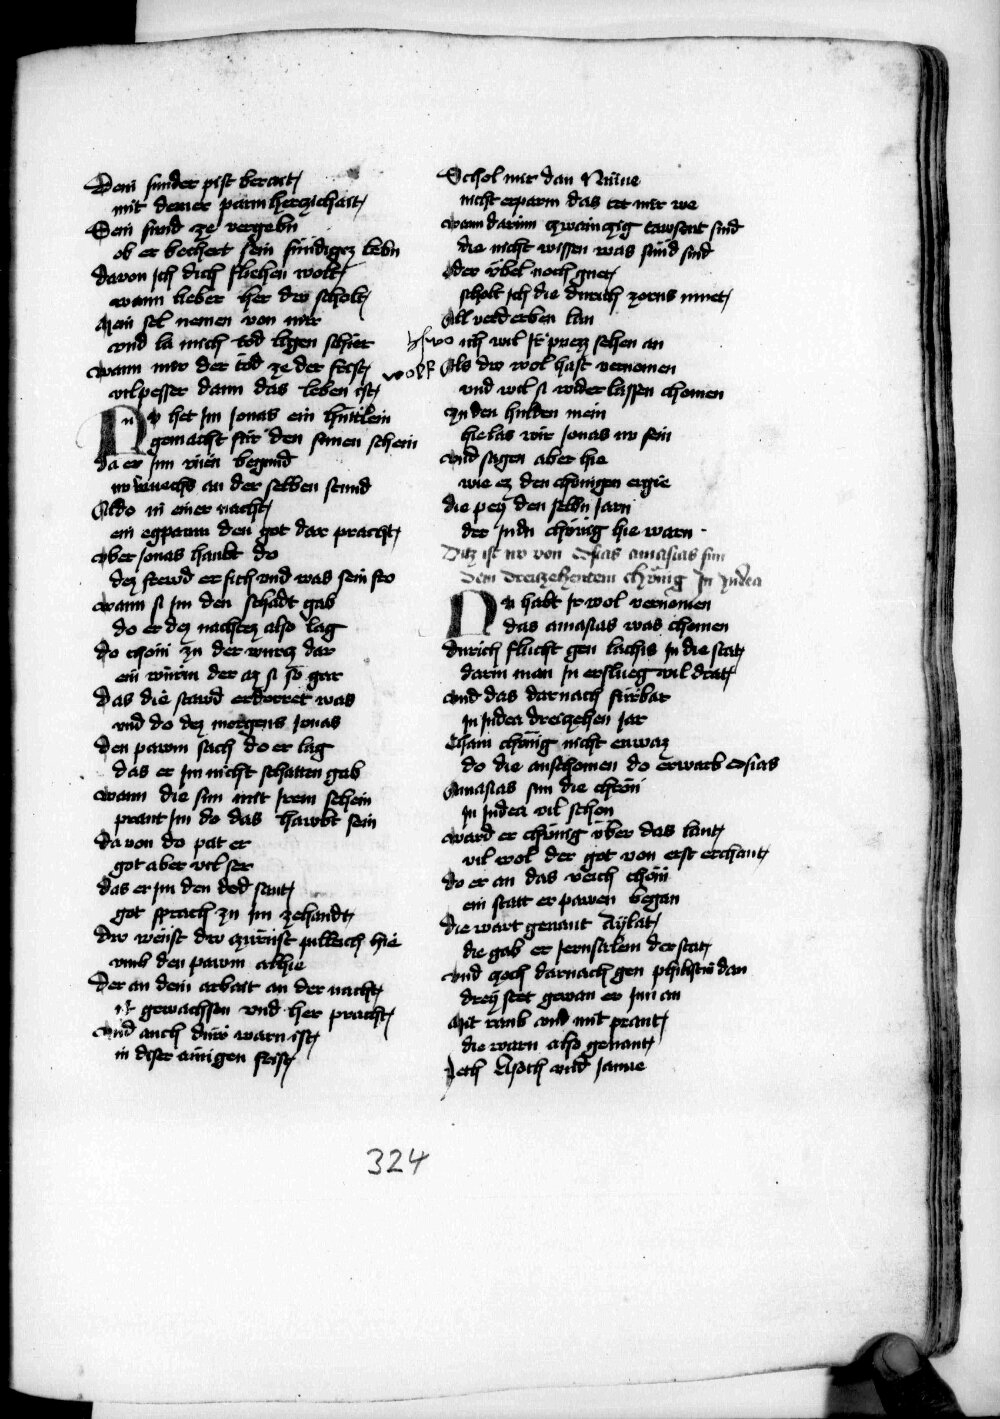 Dem sunder pist berait
mit deiner parmherczichait
Sein sund ze vergebn
ob er bechert sein sundigez lebn
davon ich dich fliehen wolt
wann lieber her dw scholt
Mein sel nemen von mir
vnd la mich tod ligen schier
wann mir der tod ze der frist
vil pesser dann das leben ist
Nu het im Jonas ein huttlein
gemacht fur den sunen schein
da er Inn begund
nu wuechs an der selben stund
Aldo in einer nacht
ein egparm den got dar pracht
vber Jonas haubt do
dez frewd er sich vnd was sein fro
wann si im den schadt gab
do er dez nachtez also lag
do chom zu der wurcz dar
ein wurm der az si so gar
das die stawd erdorret was
vnd do dez morgens Jonas
den pawm sach do er lag
das er im nicht schatten gab
wann die sun mit irem schein
prant im do das hawbt sein
davon do pat er
got aber vil ser
das er im den dod sant
got sprach zu im zehandt
dw wenst dw zurnst pilleich hie
vmb den pawm alhie
Der an dein arbait an der nacht
ist gewachssen vnd her pracht
vnd auch durr warn ist
in diser ainigen frist
Schol mir dan Niniue
nicht erparm das tet mir we
wann darinn zwainczig tawsent sind
die nicht wissen was sund sind
oder vbel noch guet
scholt ich die durich zorns muet
All verderben lan
nu ich wil ir puezz sehen an
Als dw wol hast vernomen
wolk
vnd wil si wider lassen chomen
zu den hulden mein
hie las wir Jonas nu sein
vnd sagen aber hie
wie ez den chonigen ergie
die pey den selbn Jarn
der Judn chonig hie warn
Ditz ist nu von Osias amasias sun
dem dreuzehentem chonig In Judea
Nu habt ir wol vernomen
das amasias was chomen
durich flucht gen lachis in die stat
darin man in erslueg vil drat
vnd das darnach furbar
in Judea dreizehen Jar
Chain chonig nicht enwaz
do die anschomen do erwarb Osias
Amasias sun die chron
in Judea vil schon
ward er chonig vber das lant
vil wol der got von erst erchant
do er an das reich chom
ein statt er pawen began
die wart genant Aylat
die gab er Jerusalem der stat
vnd zoch darnach gen philistin dan
drey stet gewan er inn an
Mit raub vnd mit prant
die warn also genant
Jeth Asoth vnd Jamne
324